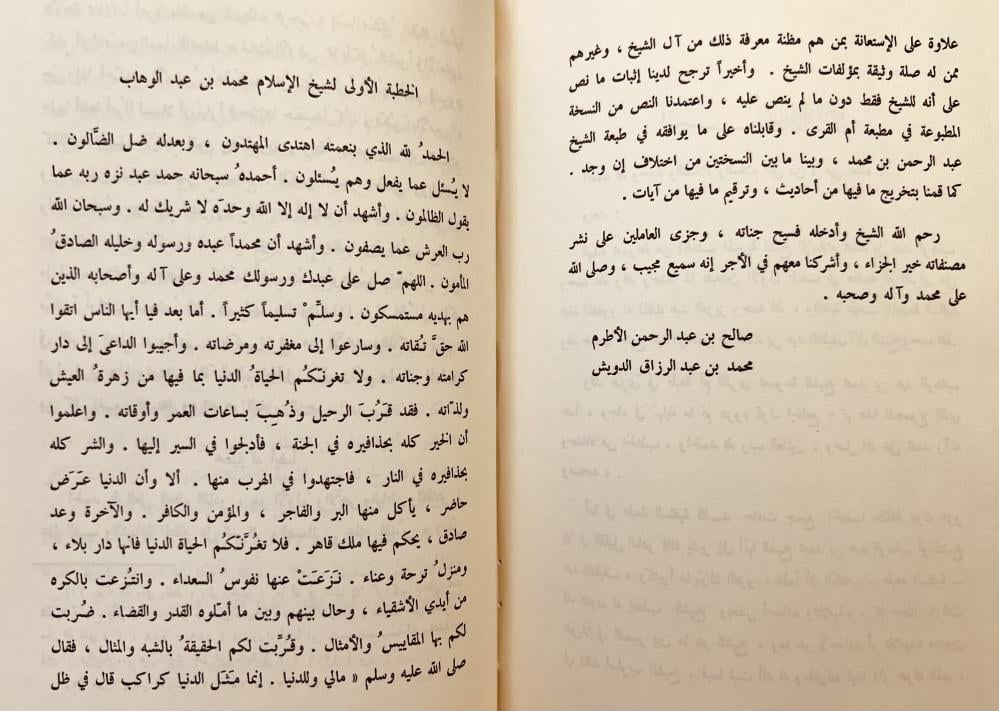 علاوة على الإستعانة بمن هم مظنة معرفة ذلك من آل الشيخ ، وغيرهم
ممن له صلة وثيقة بمؤلفات الشيخ . وأخيراً ترجح لدينا إثبات ما نص
على أنه للشيخ فقط دون ما لم ينص عليه ، واعتمدنا النص من النسخة
المطبوعة في مطبعة أم القرى . وقابلناه على ما يوافقه في طبعة الشيخ
عبد الرحمن بن محمد ، وبينا ما بين النسختين من اختلاف إن وجد .
كما قمنا بتخريج ما فيها من أحاديث ، وترقيم ما فيها من آيات .
رحم الله الشيخ وأدخله فسيح جناته ، وجزى العاملين على نشر
مصنفاته خير الجزاء ، وأشركنا معهم في الأجر إنه سميع مجيب ، وصلى الله
على محمد وآله وصحبه .
صالح بن عبد الرحمن الأطرم
محمد بن عبد الرزاق الدويش
الخطبة الأولى لشيخ الإسلام محمد بن عبد الوهاب
الحمدُ لله الذي بنعمته اهتدى المهتدون ، وبعدله ضل الضَّالون .
لا يُسئل عما يفعل وهم يُسئلون . أحمدهُ سبحانه حمد عبد نزه ربه عما
يقول الظالمون . وأشهد أن لا إله إلا الله وحدَه لا شريك له . وسبحان الله
رب العرش عما يصفون . وأشهد أن محمداً عبده ورسوله وخليله الصادقُ
المأمون . اللهمّ صل على عبدك ورسولك محمد وعلى آله وأصحابه الذين
هم بهديه مستمسكون . وسلِّمْ تسليماً كثيراً . أما بعد فيا أيها الناس اتقوا
الله حقَّ تُقاته . وسارعوا إلى مغفرته ومرضاته . وأجيبوا الداعيَ إلى دار
كرامته وجناته . ولا تغرنكُم الحياةُ الدنيا بما فيها من زهرةُ العيش
ولذّاته . فقد قَرُبَ الرحيل وذُهِبَ بساعات العمر وأوقاته . واعلموا
أن الخير كله بحذافيره في الجنة ، فأدلجوا في السير إليها . والشر كله
بحذافيره في النار ، فاجتهدوا في الهرب منها . ألا وأن الدنيا عَرَض
حاضر ، يأكل منها البر والفاجر ، والمؤمن والكافر . والآخرة وعد
صادق ، يحكم فيها ملك قاهر . فلا تغرَّنَكُم الحياة الدنيا فانها دار بلاء ،
ومنزلُ ترحة وعناء . نَزَعَتْ عنها نفوسُ السعداء . وانتُزعت بالكره
من أيدي الأشقياء ، وحال بينهم وبين ما أمّلوه القدر والقضاء . ضُربت
لكم بها المقاييسُ والأمثال . وقُرِّبت لكم الحقيقةُ بالشبه والمثال ، فقال
صلى الله عليه وسلم « مالي وللدنيا . إنما مَثَل الدنيا كراكب قال في ظل